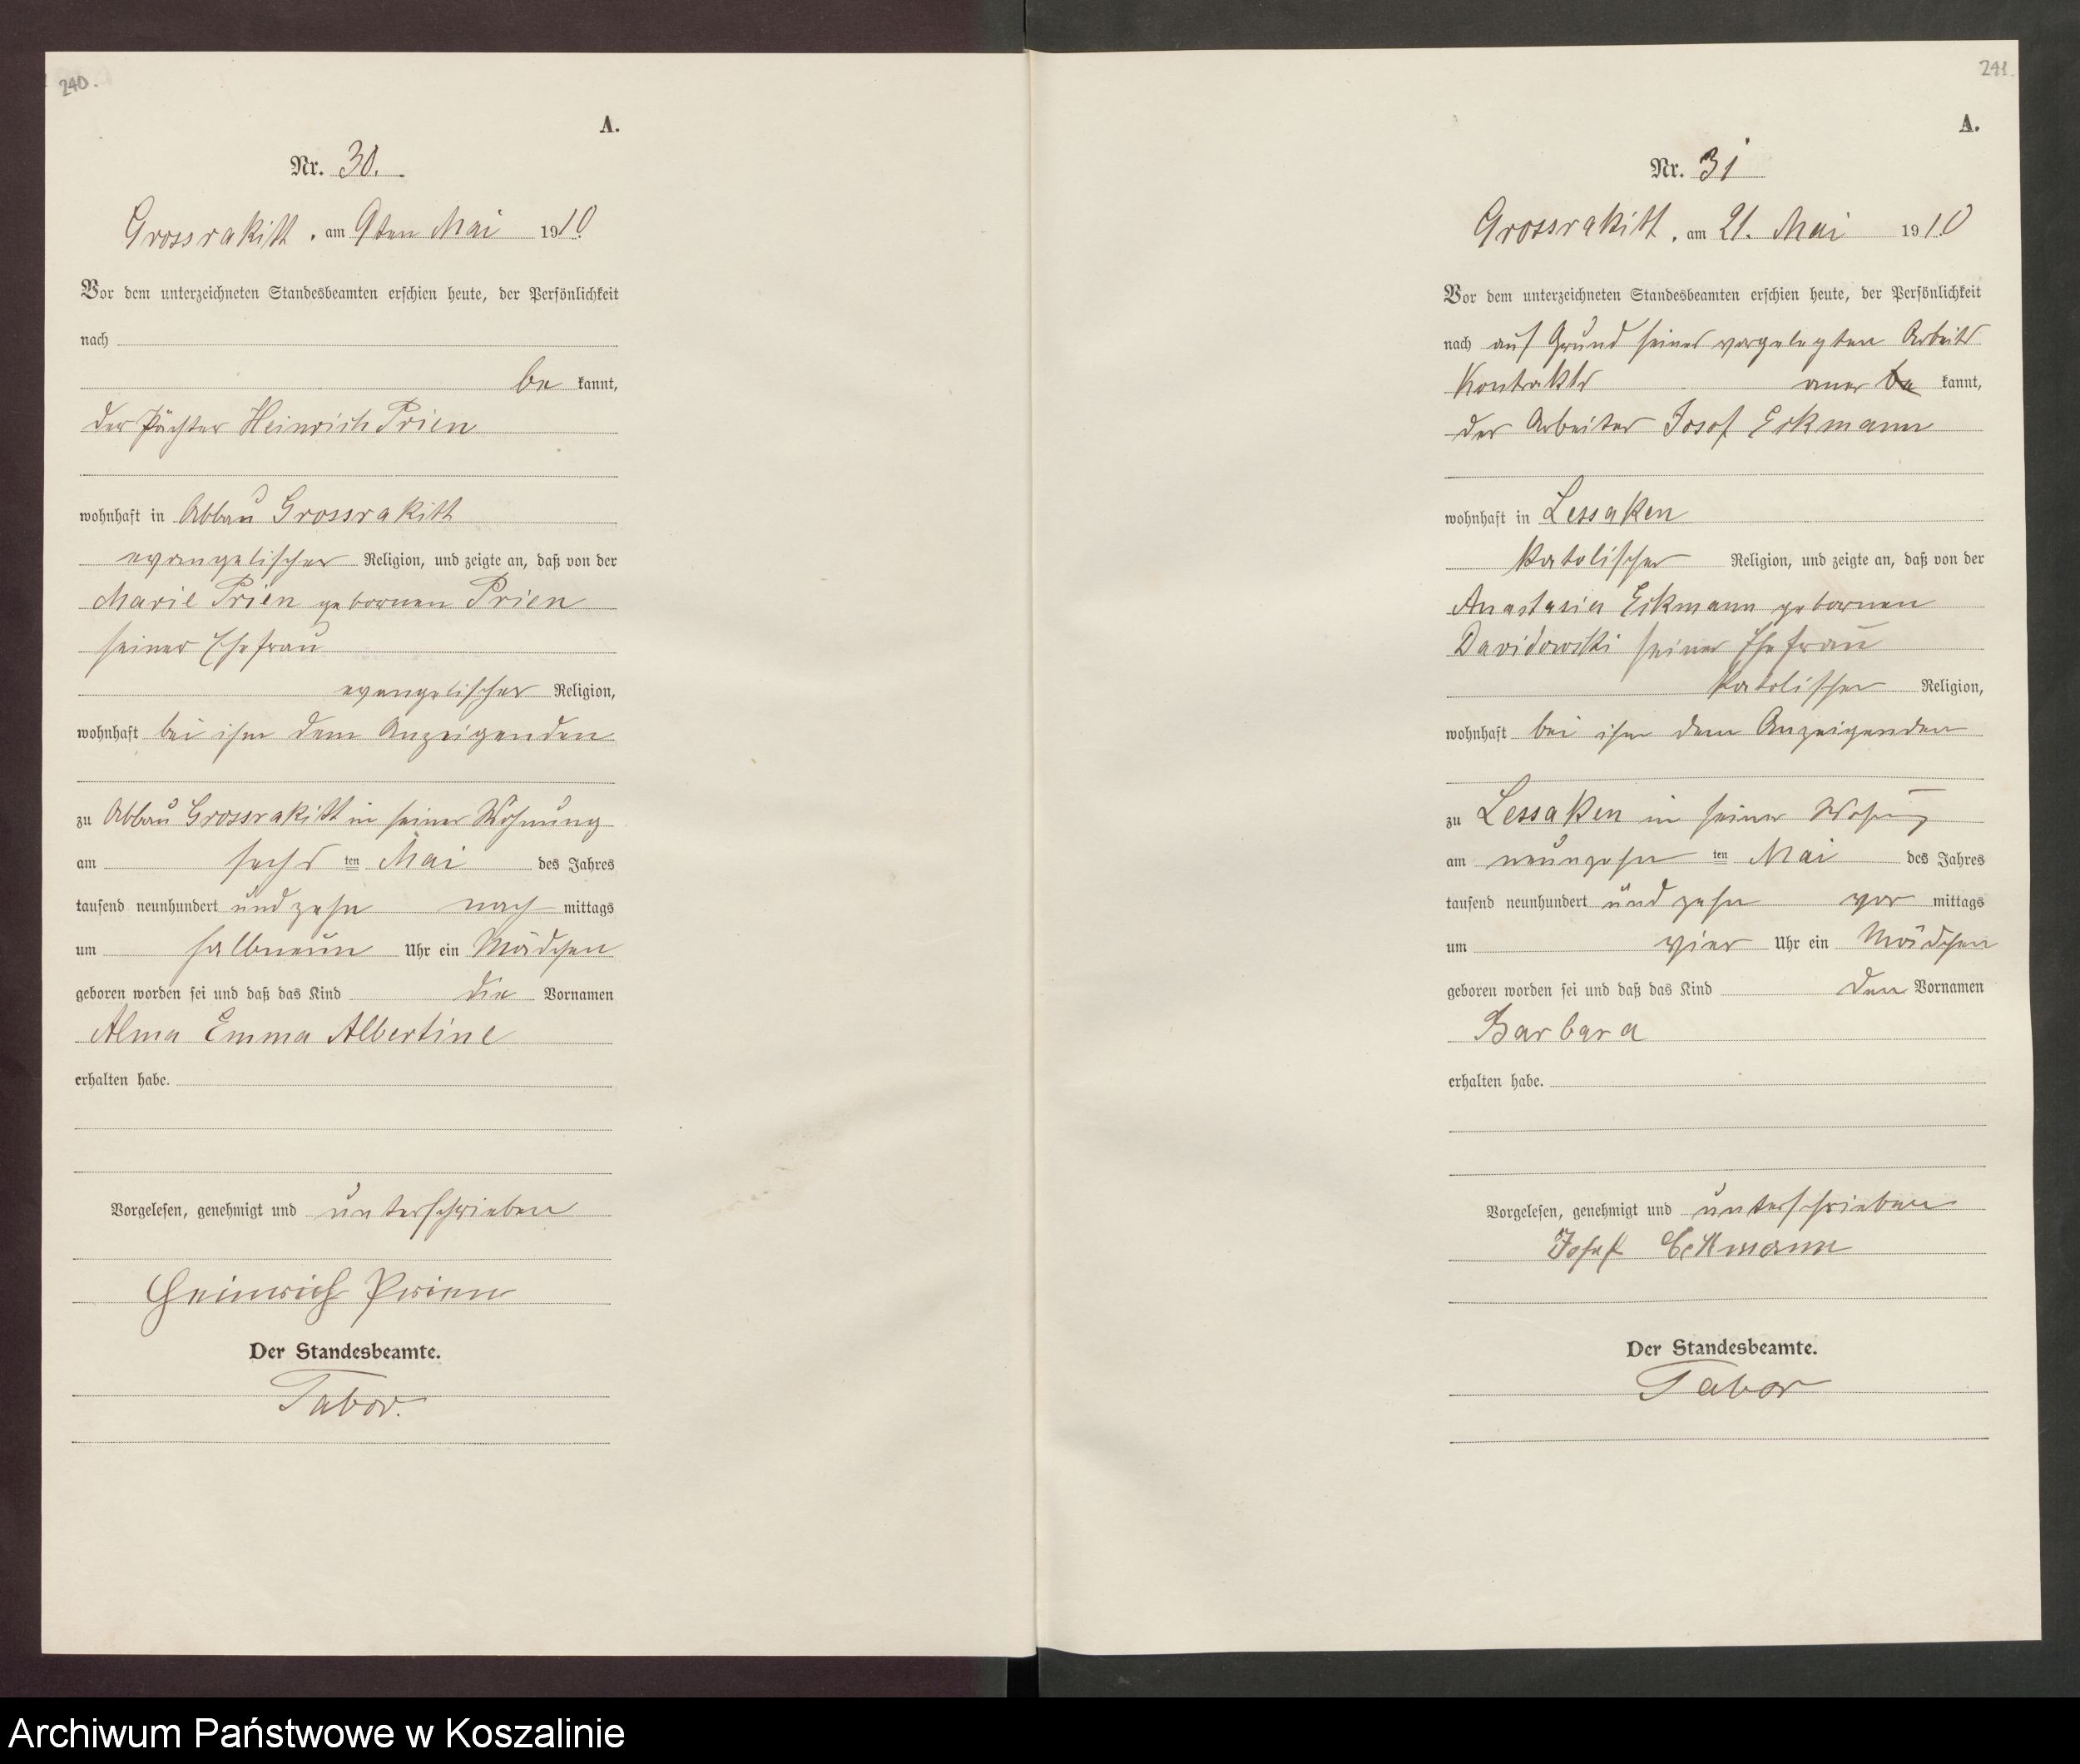 240.
A.
Nr. 30.
Grossrakitt, am 9ten Mai 1910.
Vor dem unterzeichneten Standesbeamten erschien heute, der Persönlichkeit
nach
be kannt,
der Pächter Heinrich Prien
wohnhaft in Abbau Grossrakitt
evangelischer Religion, und zeigte an, daß von der
Marie Prien gebornen Prien
seiner Ehefrau
evangelischer Religion,
wohnhaft bei ihm dem Anzeigenden
zu Abbau Grossrakitt in seiner Wohnung
am sechs ten Mai des Jahres
tausend neunhundert und zehn nach mittags
um halbneun Uhr ein Mädchen
geboren worden sei und daß das Kind die Vornamen
Alma Emma Albertine
erhalten habe.
Vorgelesen, genehmigt und unterschrieben
Heinrich Prien
Der Standesbeamte.
Tabor.
241.
A.
Nr. 31
Grossrakitt, am 21. Mai 1910
Vor dem unterzeichneten Standesbeamten erschien heute, der Persönlichkeit
nach auf Grund seines vorgelegten Arbeits
Kontrakts aner be kannt,
der Arbeiter Josef Eckmann
wohnhaft in Lessaken
katolischer Religion, und zeigte an, daß von der
Anastasia Eckmann gebornen
Davidowski seiner Ehefrau
katolischer Religion,
wohnhaft bei ihm dem Anzeigenden
zu Lessaken in seiner Wohung
am neunzehn ten Mai des Jahres
tausend neunhundert und zehn vor mittags
um vier Uhr ein Mädchen
geboren worden sei und daß das Kind den Vornamen
Barbara
erhalten habe.
Vorgelesen, genehmigt und unterschrieben
Josef Eckmann
Der Standesbeamte.
Tabor
Archiwum Państwowe w Koszalinie